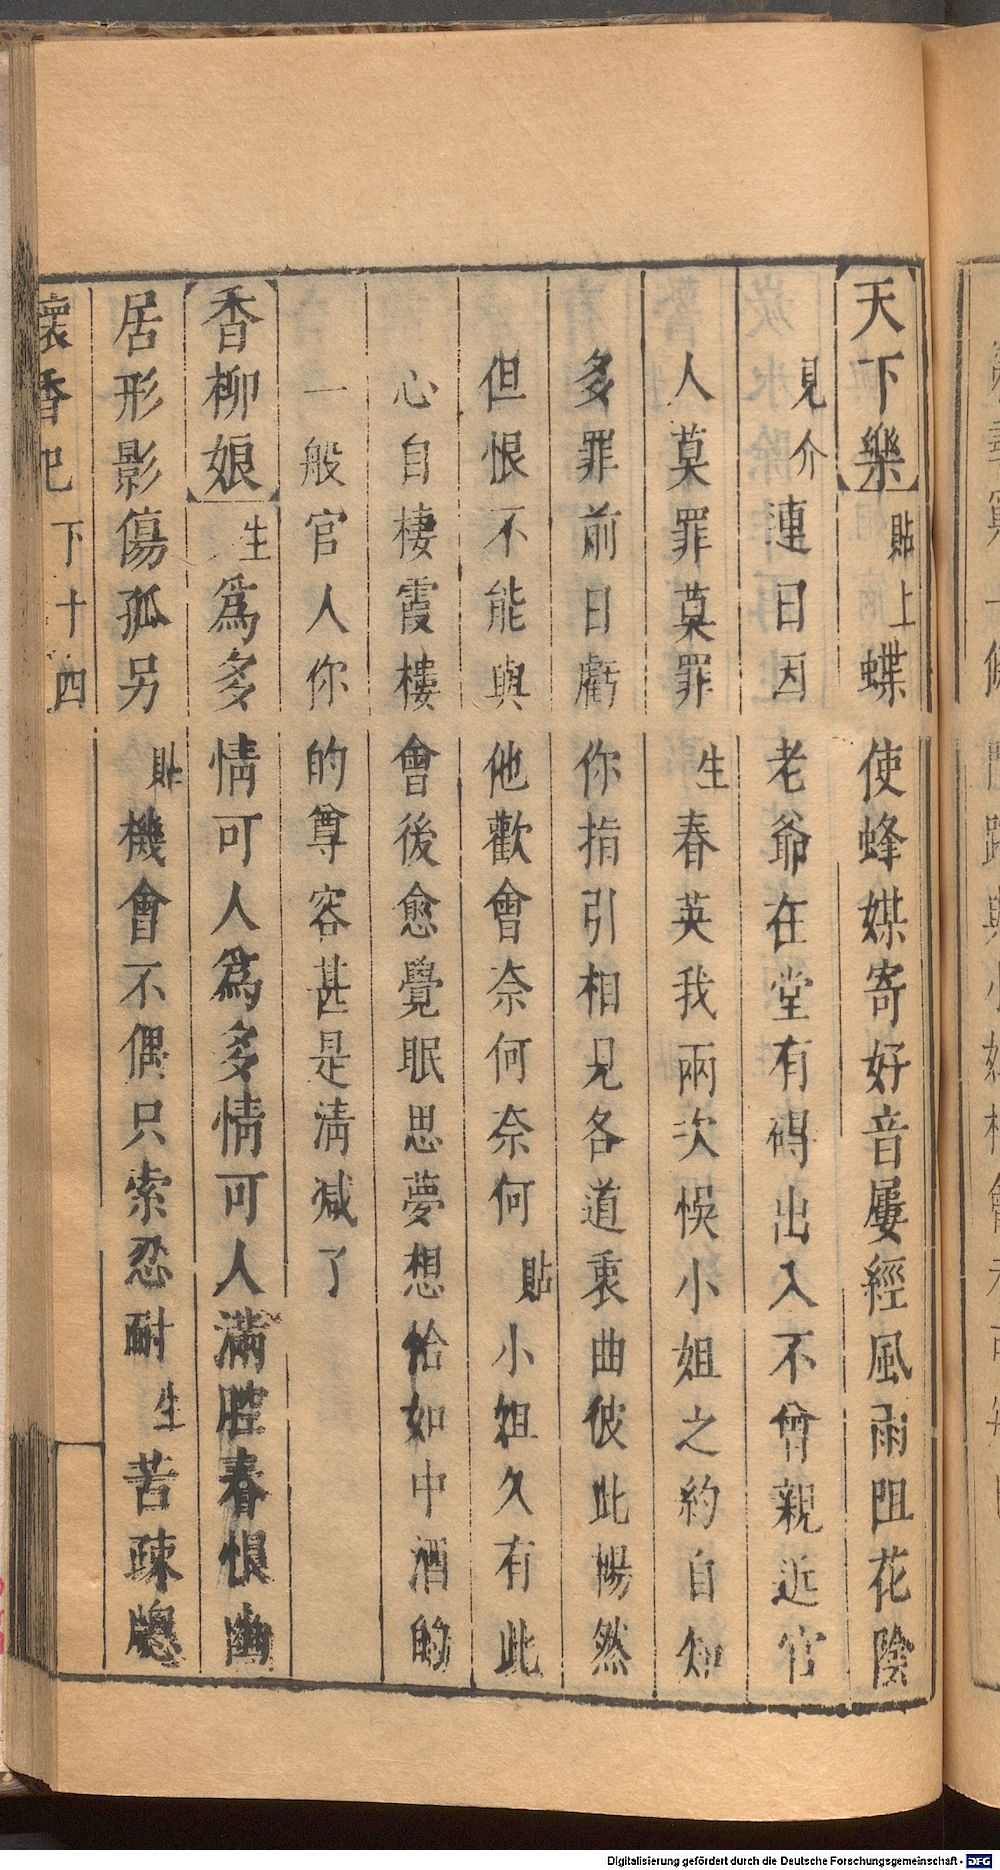 天下樂貼上蝶使蜂媒寄好音屢經風雨阻花陰
見介連日因老爺在堂有碍出入不曾親近官
人莫罪莫罪生春英我兩次悞小姐之約自知
多罪前日虧你指引相見各道衷曲彼此暢然
但恨不能與他歡會奈何奈何貼小姐久有此
心自棲霞樓會後愈覺眠思夢想恰如中酒的
一般官人你的尊容甚是淸减了
香柳娘生爲多情可人爲多情可人滿腔春恨幽
居形影傷孤另貼機會不偶只索忍耐生苦疎牕
懷香記 下 十四
Digitalisierung gefördert durch die Deutsche Forschungsgemeinschaft - DFG